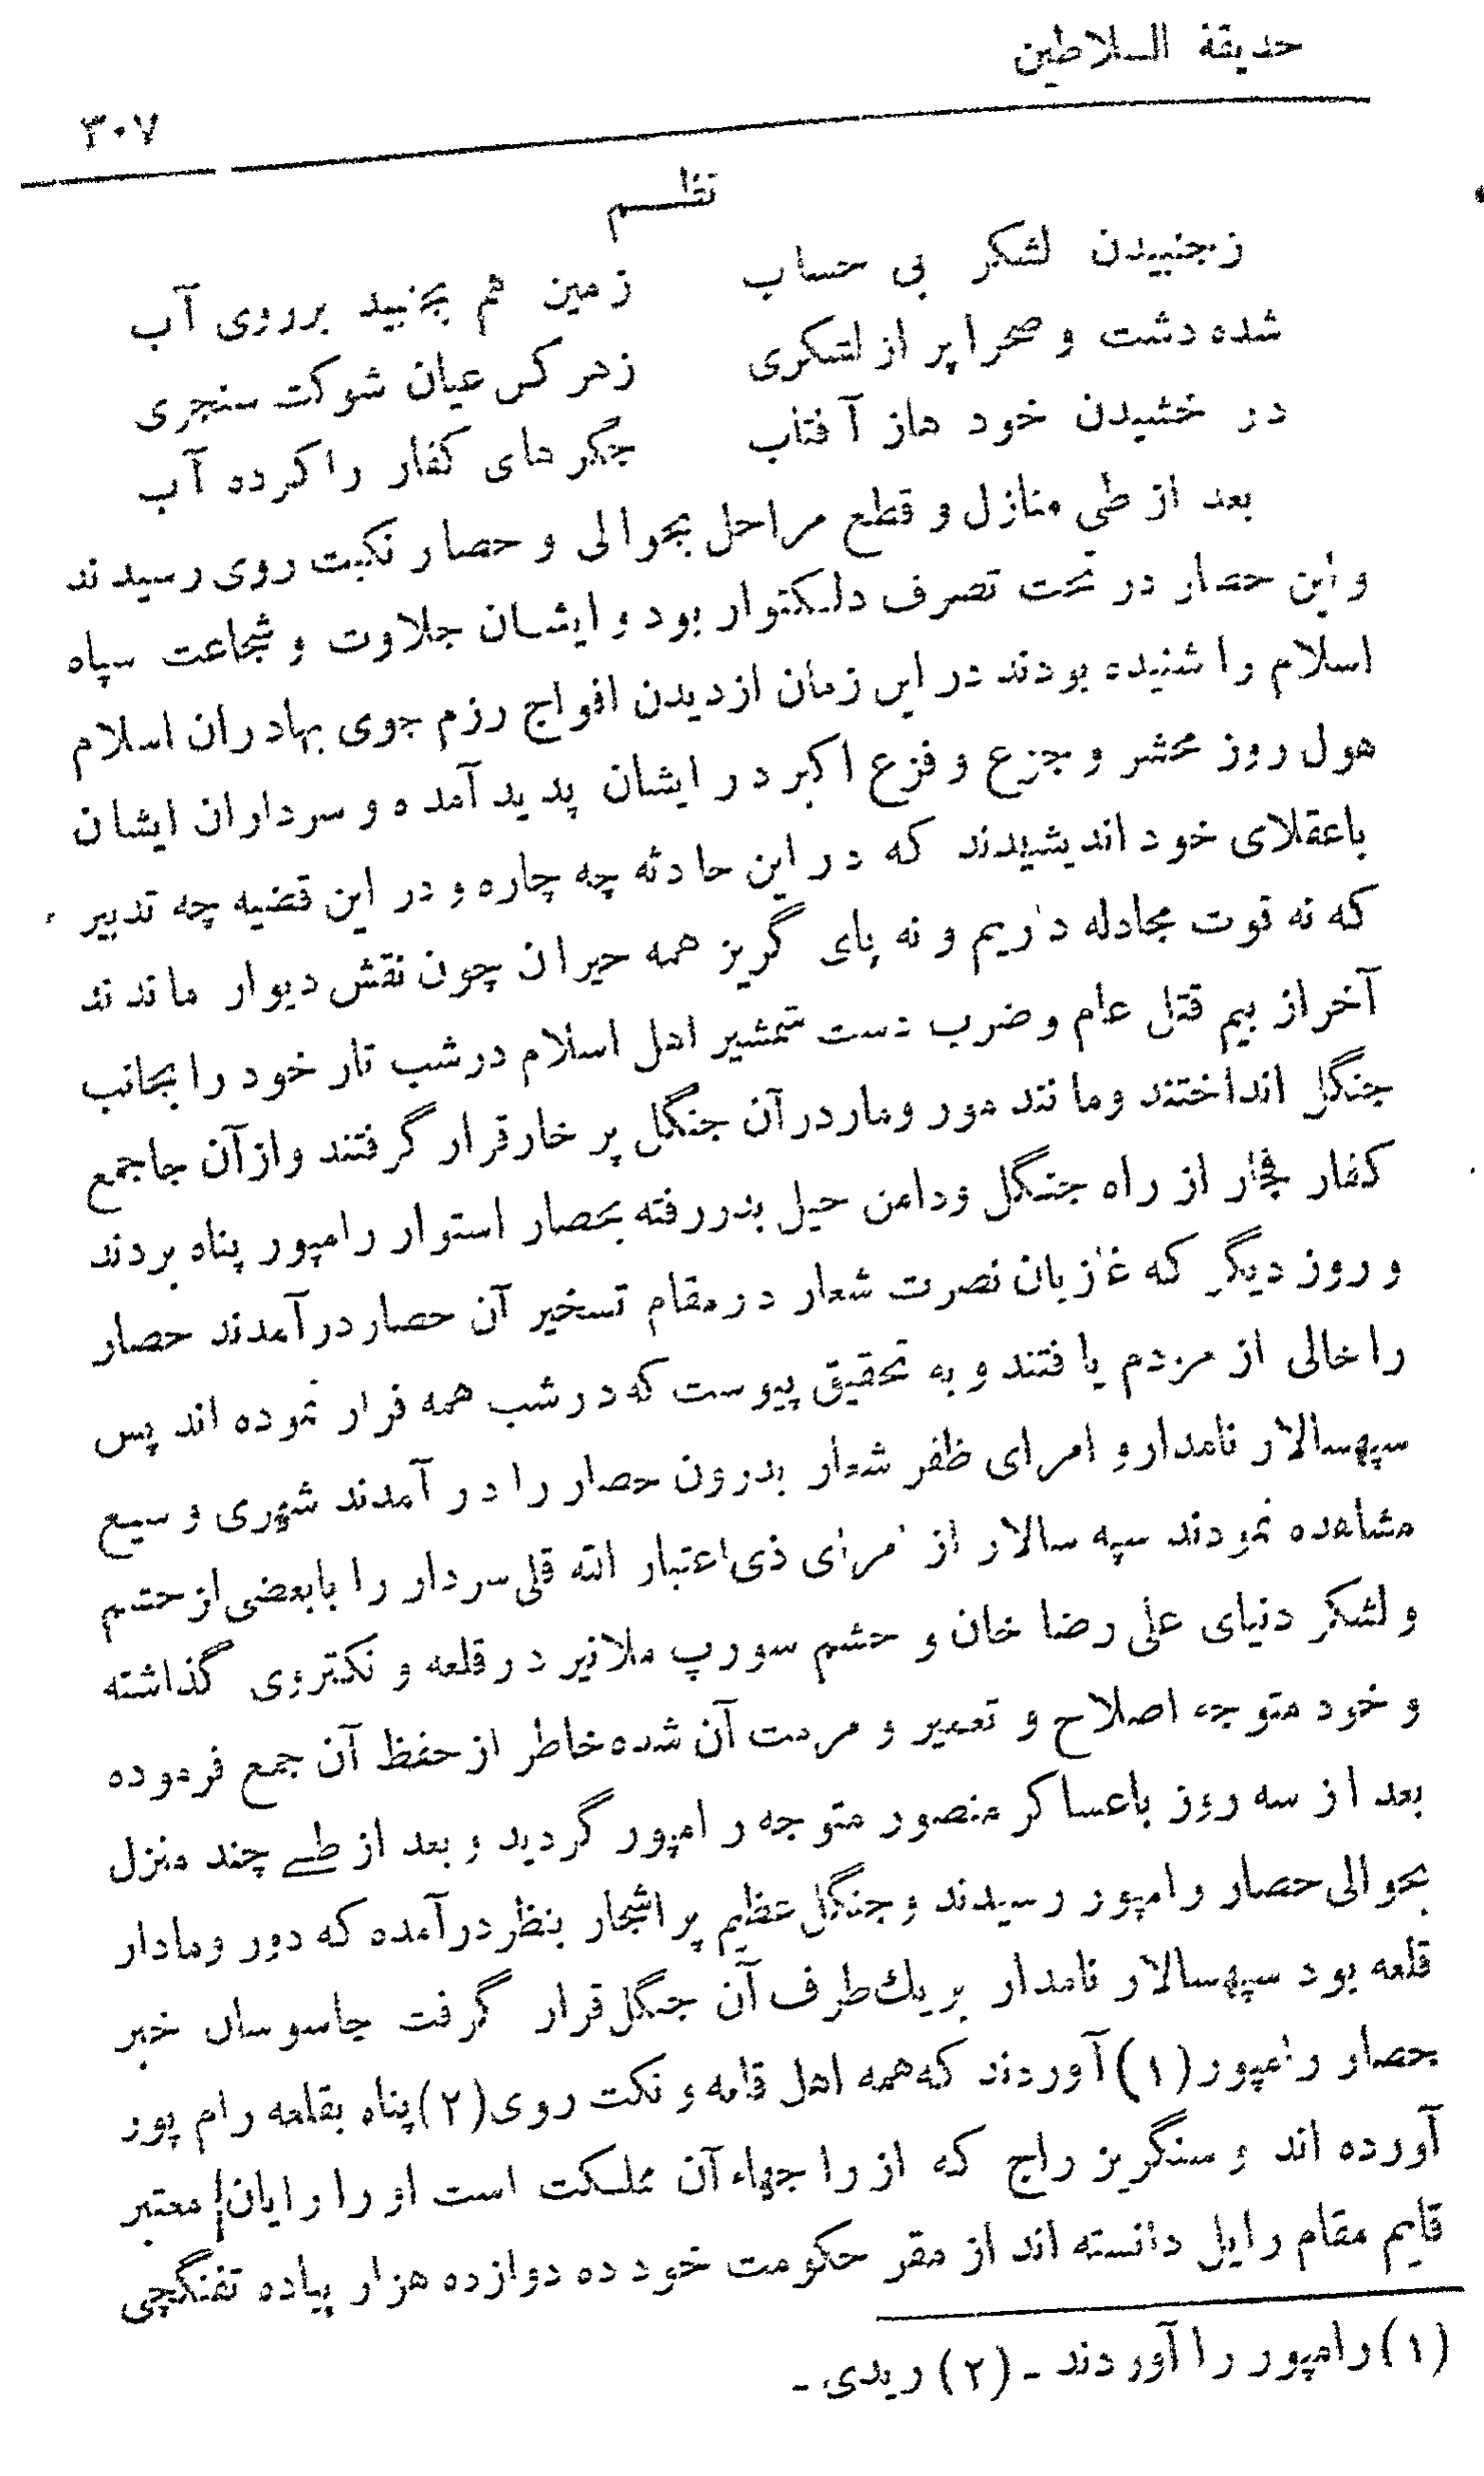 حديقة السلاطين
٣٠٧
نظم
زجنبيدن لشكر بی حساب زمين هم بجنبيد برروی آب
شده دشت و صحرا پر از لشكری زهر كس عيان شوكت سنجری
در خشيدن خود هاز آفتاب جگر های كفار را كرده آب
بعد از طی منازل و قطع مراحل بحوالی و حصار نكبت روی رسيدند
واين حصار در تحت تصرف دلكتوار بود و ايشان جلاوت و شجاعت سپاه
اسلام را شنيده بودند در اين زمان از ديدن افواج رزم جوی بهادران اسلام
هول روز محشر و جزع و فزع اكبر در ايشان پديد آمده و سرداران ايشان
باعقلای خود انديشيدند كه در اين حادثه چه چاره و در اين قضيه چه تدبير
كه نه قوت مجادله داريم و نه پای گريز همه حيران چون نقش ديوار ماندند
آخر از بيم قتل عام و ضرب دست شمشير اهل اسلام در شب تار خود را بجانب
جنگل انداختند و مانند مور و مار در آن جنگل پر خار قرار گرفتند و از آن جا جمع
كفار فجار از راه جنگل و دامن حيل بدر رفته بحصار استوار رامپور پناه بردند
و روز ديگر كه غازيان نصرت شعار در مقام تسخير آن حصار در آمدند حصار
را خالی از مردم يافتند و به تحقيق پيوست كه در شب همه فرار نموده اند پس
سپهسالار نامدار و امرای ظفر شعار بدرون حصار را در آمدند شهری وسيع
مشاهده نمودند سپه سالار از امرای ذی اعتبار الله قلی سردار را بابعضی از حشم
و لشكر دنيای علی رضا خان و حشم سورپ ملانير در قلعه و نكتروی گذاشته
و خود متوجه اصلاح و تعمير و مرمت آن شده خاطر از حفظ آن جمع فرموده
بعد از سه روز باعساكر منصور متوجه رامپور گرديد و بعد از طے چند منزل
بحوالی حصار رامپور رسيدند و جنگل عظيم پر اشجار بنظر در آمده كه دور ومادار
قلعه بود سپهسالار نامدار بر يك طرف آن جنگل قرار گرفت جاسوسان خبر
بحصار رامپور (١) آوردند كه همه اهل قلعه و نكت روی (٢) پناه بقلعه رام پور
آورده اند و سنگريز راج كه از راجهاء آن مملكت است او را رايان معتبر
قايم مقام رايل دانسته اند از مقر حكومت خود ده دوازده هزار پياده تفنگچی
(١) رامپور را آوردند ـ (٢) ريدی ـ